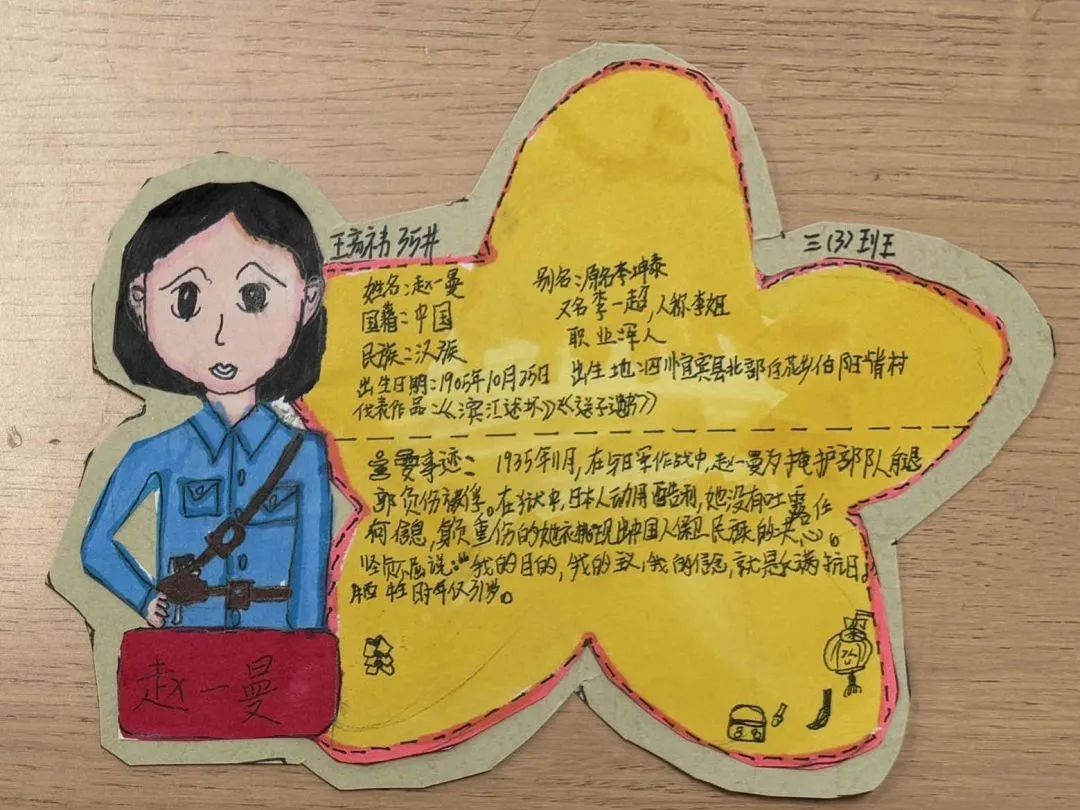 三(3)班
姓名:赵一曼
别名:原名李坤泰
国籍:中国
又名李一超,人称李姐
民族:汉族
职业:军人
出生日期:1905年10月25日
出生地:四川宜宾县北部白花乡伯阳嘴村
代表作品:《滨江述怀》《
主要事迹: 1935年11月,在与日军作战中,赵一曼为掩护部队
在狱中,日本人动用酷刑,她没有吐露任
何信息,身负重伤的她 现出中国人保卫民族的决心。
说:“我的目的,我的主义,我的信念,就是 满抗日。
牺牲时年仅31岁。
赵一曼